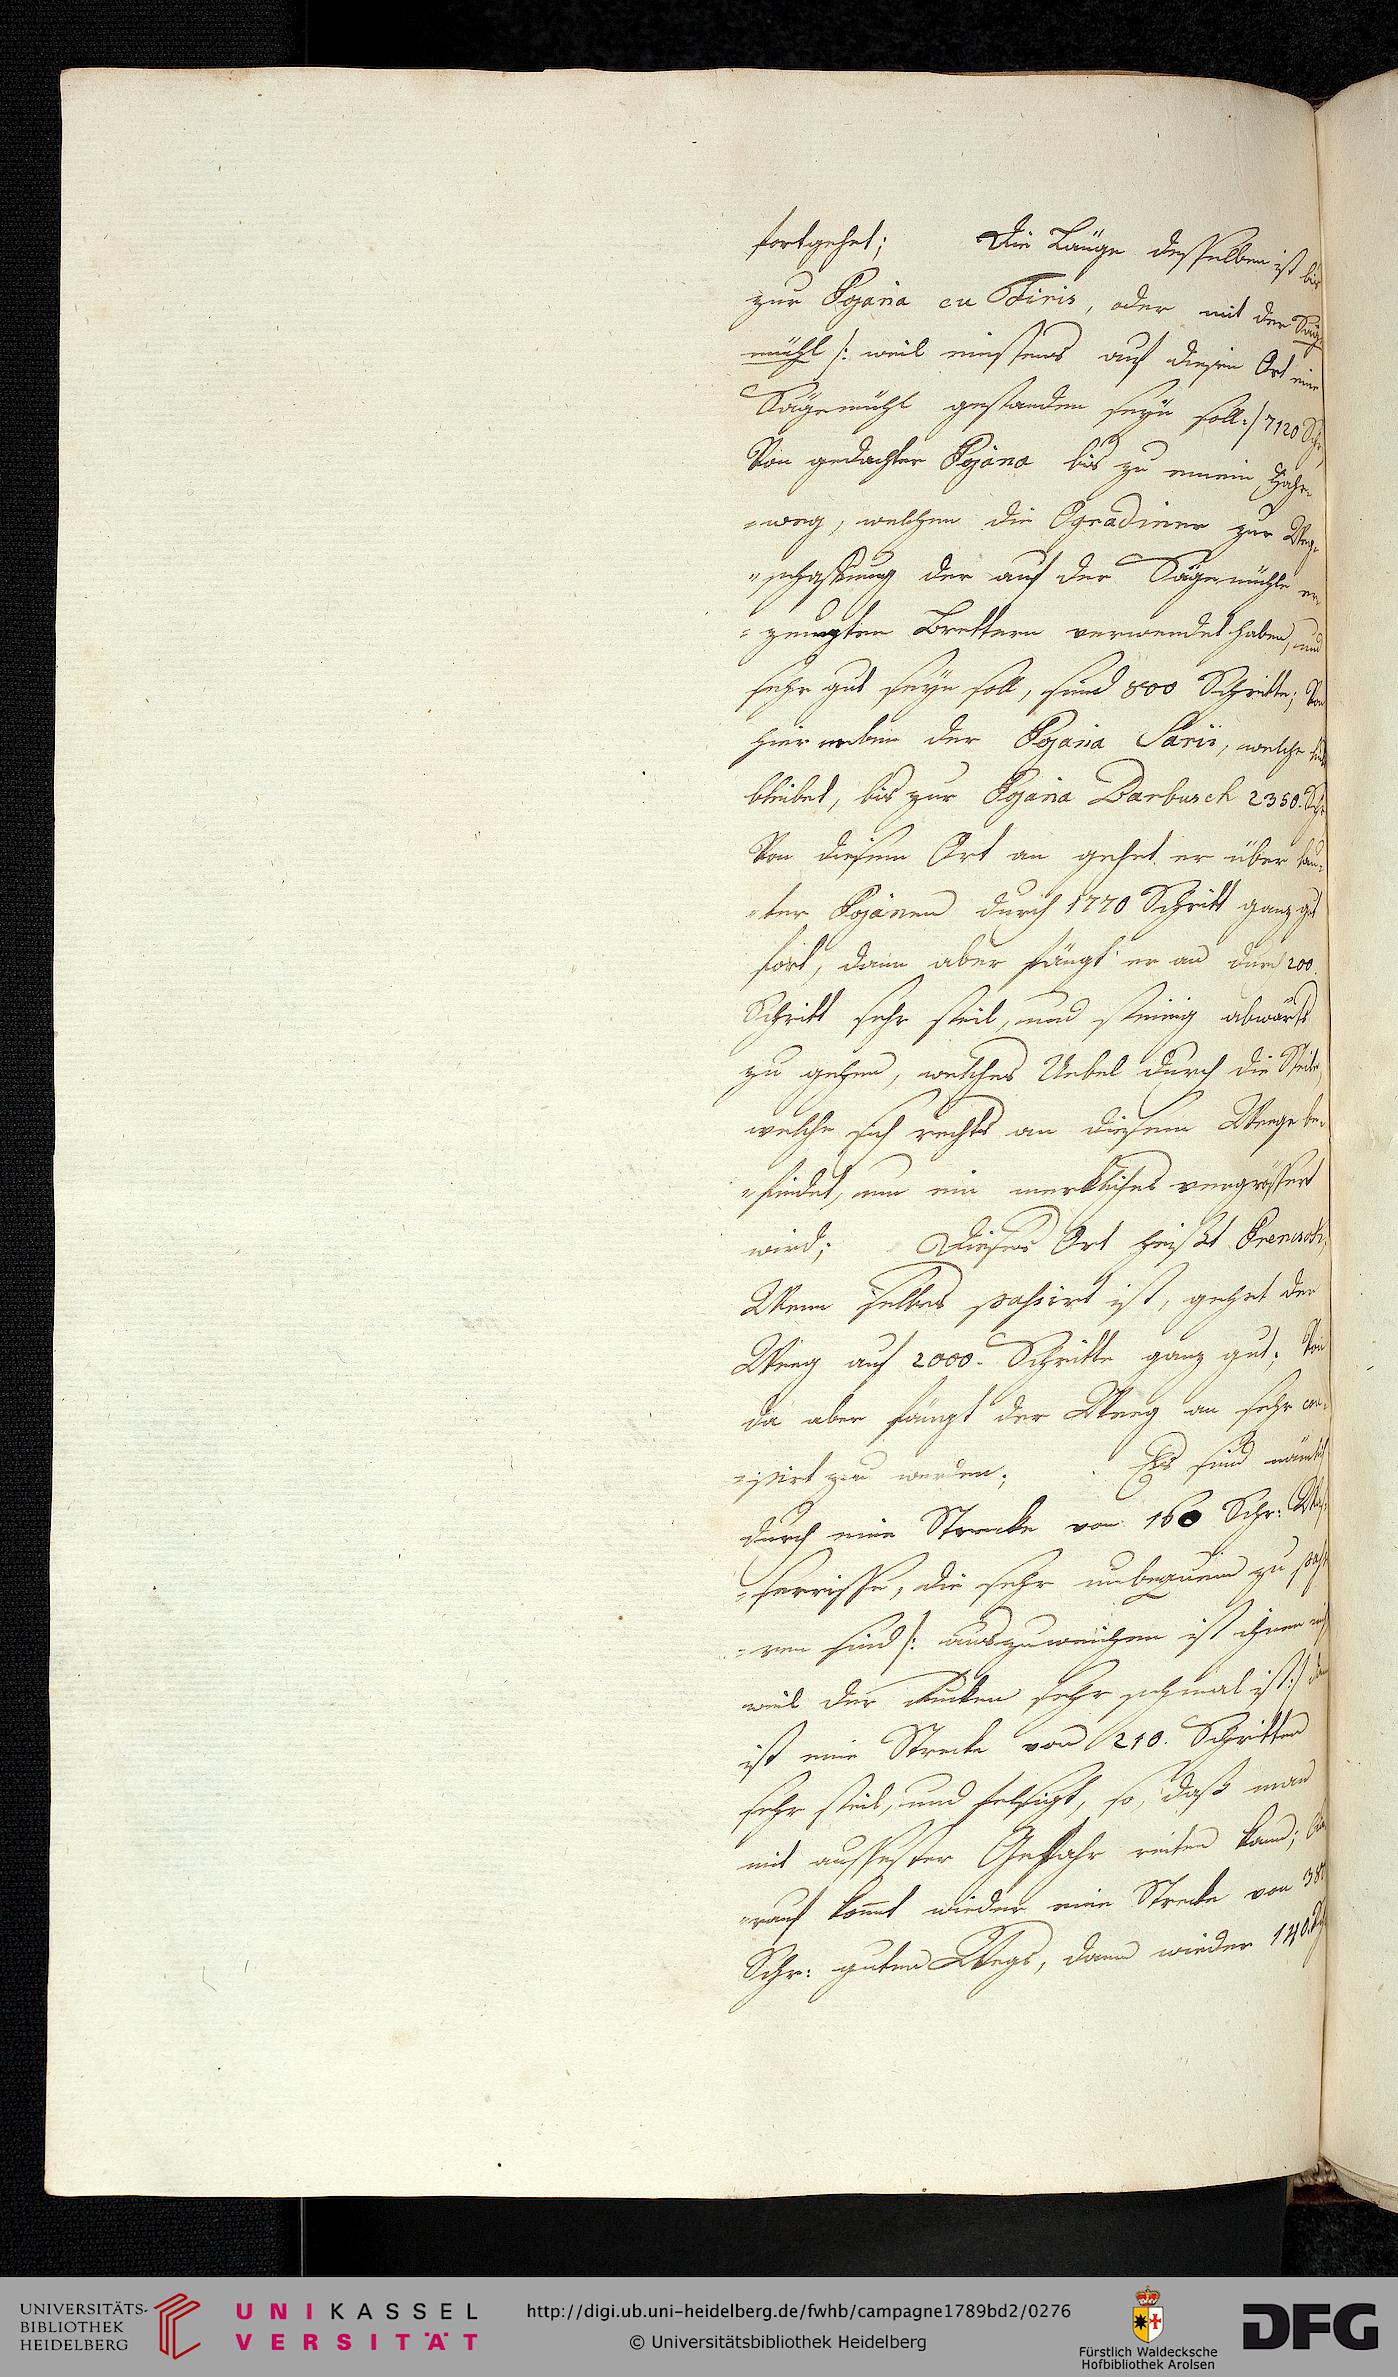 fortgehet; Die Länge desselben ist bis
zur Pojana cu Firis, oder mit der Säg-
mühl /: weil einstens auf diesen Ort eine
Sägemühl gestanden seyn soll :/ 7120 Schr,
Von gedachter Pojana bis zu einem Fahr-
=weg, welchen die Ogradiner zur Weg-
=schaffung der auf der Sägemühle er-
=zeugten Brettern verwendet haben, und
sehr gut seyn soll, sind 800 Schritte; Von
hier neben der Pojana Sarii, welche
bleibet, bis zur Pojana Barbusch 2350. Schr
Von diesem Ort an gehet er über lau-
=ter Pojanen durch 1770 Schritt ganz gut
fort, dann aber fängt er an durch 200
Schritt sehr steil, und steinig abwärts
zu gehen, welches Uebel durch die Steile,
welche sich rechts an diesem Weege be-
=findet, um ein merkliches vergrössert
wird; Dieses Ort heißt
Wenn selbes passirt ist, gehet der
Weeg auf 2000. Schritte ganz gut; Von
da aber fängt der Weeg an sehr cou-
=pirt zu werden; Es sind nämlich
durch eine Strecke von 160 Schr: Was-
=serrisse, die sehr unbequem zu passi-
=ren sind /: auszuweichen ist ihnen nicht
weil der Rucken sehr schmal ist :/ dann
ist eine Strecke von 210. Schritten
sehr steil, und felsigt, so, daß man
mit äussester Gefahr reiten kann;
=rauf kommt wieder eine Strecke von
Schr: guten Wegs, dann wieder 140. Schr
UNIVERSITÄTS-
BIBLIOTHEK
HEIDELBERG
UNIKASSEL
VERSITÄT
http://digi.ub.uni-heidelberg.de/fwhb/campagne1789bd2/0276
© Universitätsbibliothek Heidelberg
Fürstlich Waldecksche
Hofbibliothek Arolsen
DFG